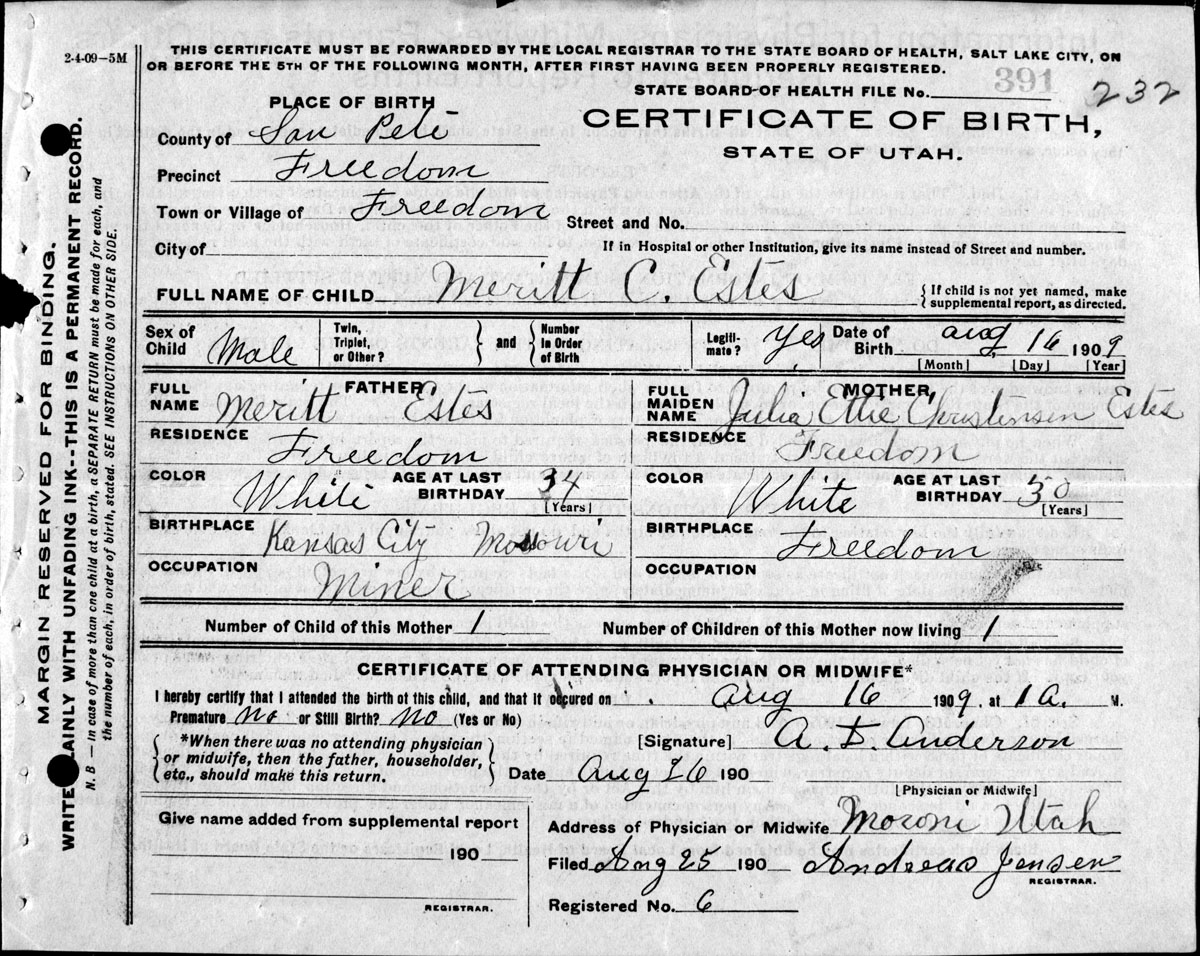 2-4-09—5M
THIS CERTIFICATE MUST BE FORWARDED BY THE LOCAL REGISTRAR TO THE STATE BOARD OF HEALTH, SALT LAKE CITY, ON
OR BEFORE THE 5TH OF THE FOLLOWING MONTH, AFTER FIRST HAVING BEEN PROPERLY REGISTERED.
STATE BOARD OF HEALTH FILE No. 391 232
PLACE OF BIRTH
CERTIFICATE OF BIRTH,
STATE OF UTAH.
County of San Pete
Precinct Freedom
Town or Village of Freedom
Street and No.
City of
If in Hospital or other Institution, give its name instead of Street and number.
FULL NAME OF CHILD Meritt C. Estes
{ If child is not yet named, make
supplemental report, as directed.
Sex of Child Male Twin, Triplet, or Other? } and { Number In Order of Birth Legiti-mate? Yes Date of Birth Aug 16 1909
[Month] [Day] [Year]
FATHER
FULL NAME Meritt Estes
RESIDENCE Freedom
COLOR White AGE AT LAST BIRTHDAY 34
[Years]
BIRTHPLACE Kansas City Missouri
OCCUPATION Miner
MOTHER
FULL MAIDEN NAME Julia Christensen Estes
RESIDENCE Freedom
COLOR White AGE AT LAST BIRTHDAY
[Years]
BIRTHPLACE Freedom
OCCUPATION
Number of Child of this Mother 1 Number of Children of this Mother now living 1
CERTIFICATE OF ATTENDING PHYSICIAN OR MIDWIFE*
I hereby certify that I attended the birth of this child, and that it occured on Aug 16 1909. at 1 A. M.
Premature No or Still Birth? No (Yes or No)
{ *When there was no attending physician
or midwife, then the father, householder,
etc., should make this return. }
[Signature] A. D. Anderson
Date Aug 26 190
[Physician or Midwife]
Give name added from supplemental report
190
REGISTRAR.
Address of Physician or Midwife Moroni Utah
Filed Aug 25 190 Andreas Jensen
REGISTRAR.
Registered No. 6
MARGIN RESERVED FOR BINDING.
WRITE PLAINLY WITH UNFADING INK--THIS IS A PERMANENT RECORD.
N. B — in case of more than one child at a birth, a SEPARATE RETURN must be made for each, and
the number of each, in order of birth, stated. SEE INSTRUCTIONS ON OTHER SIDE.